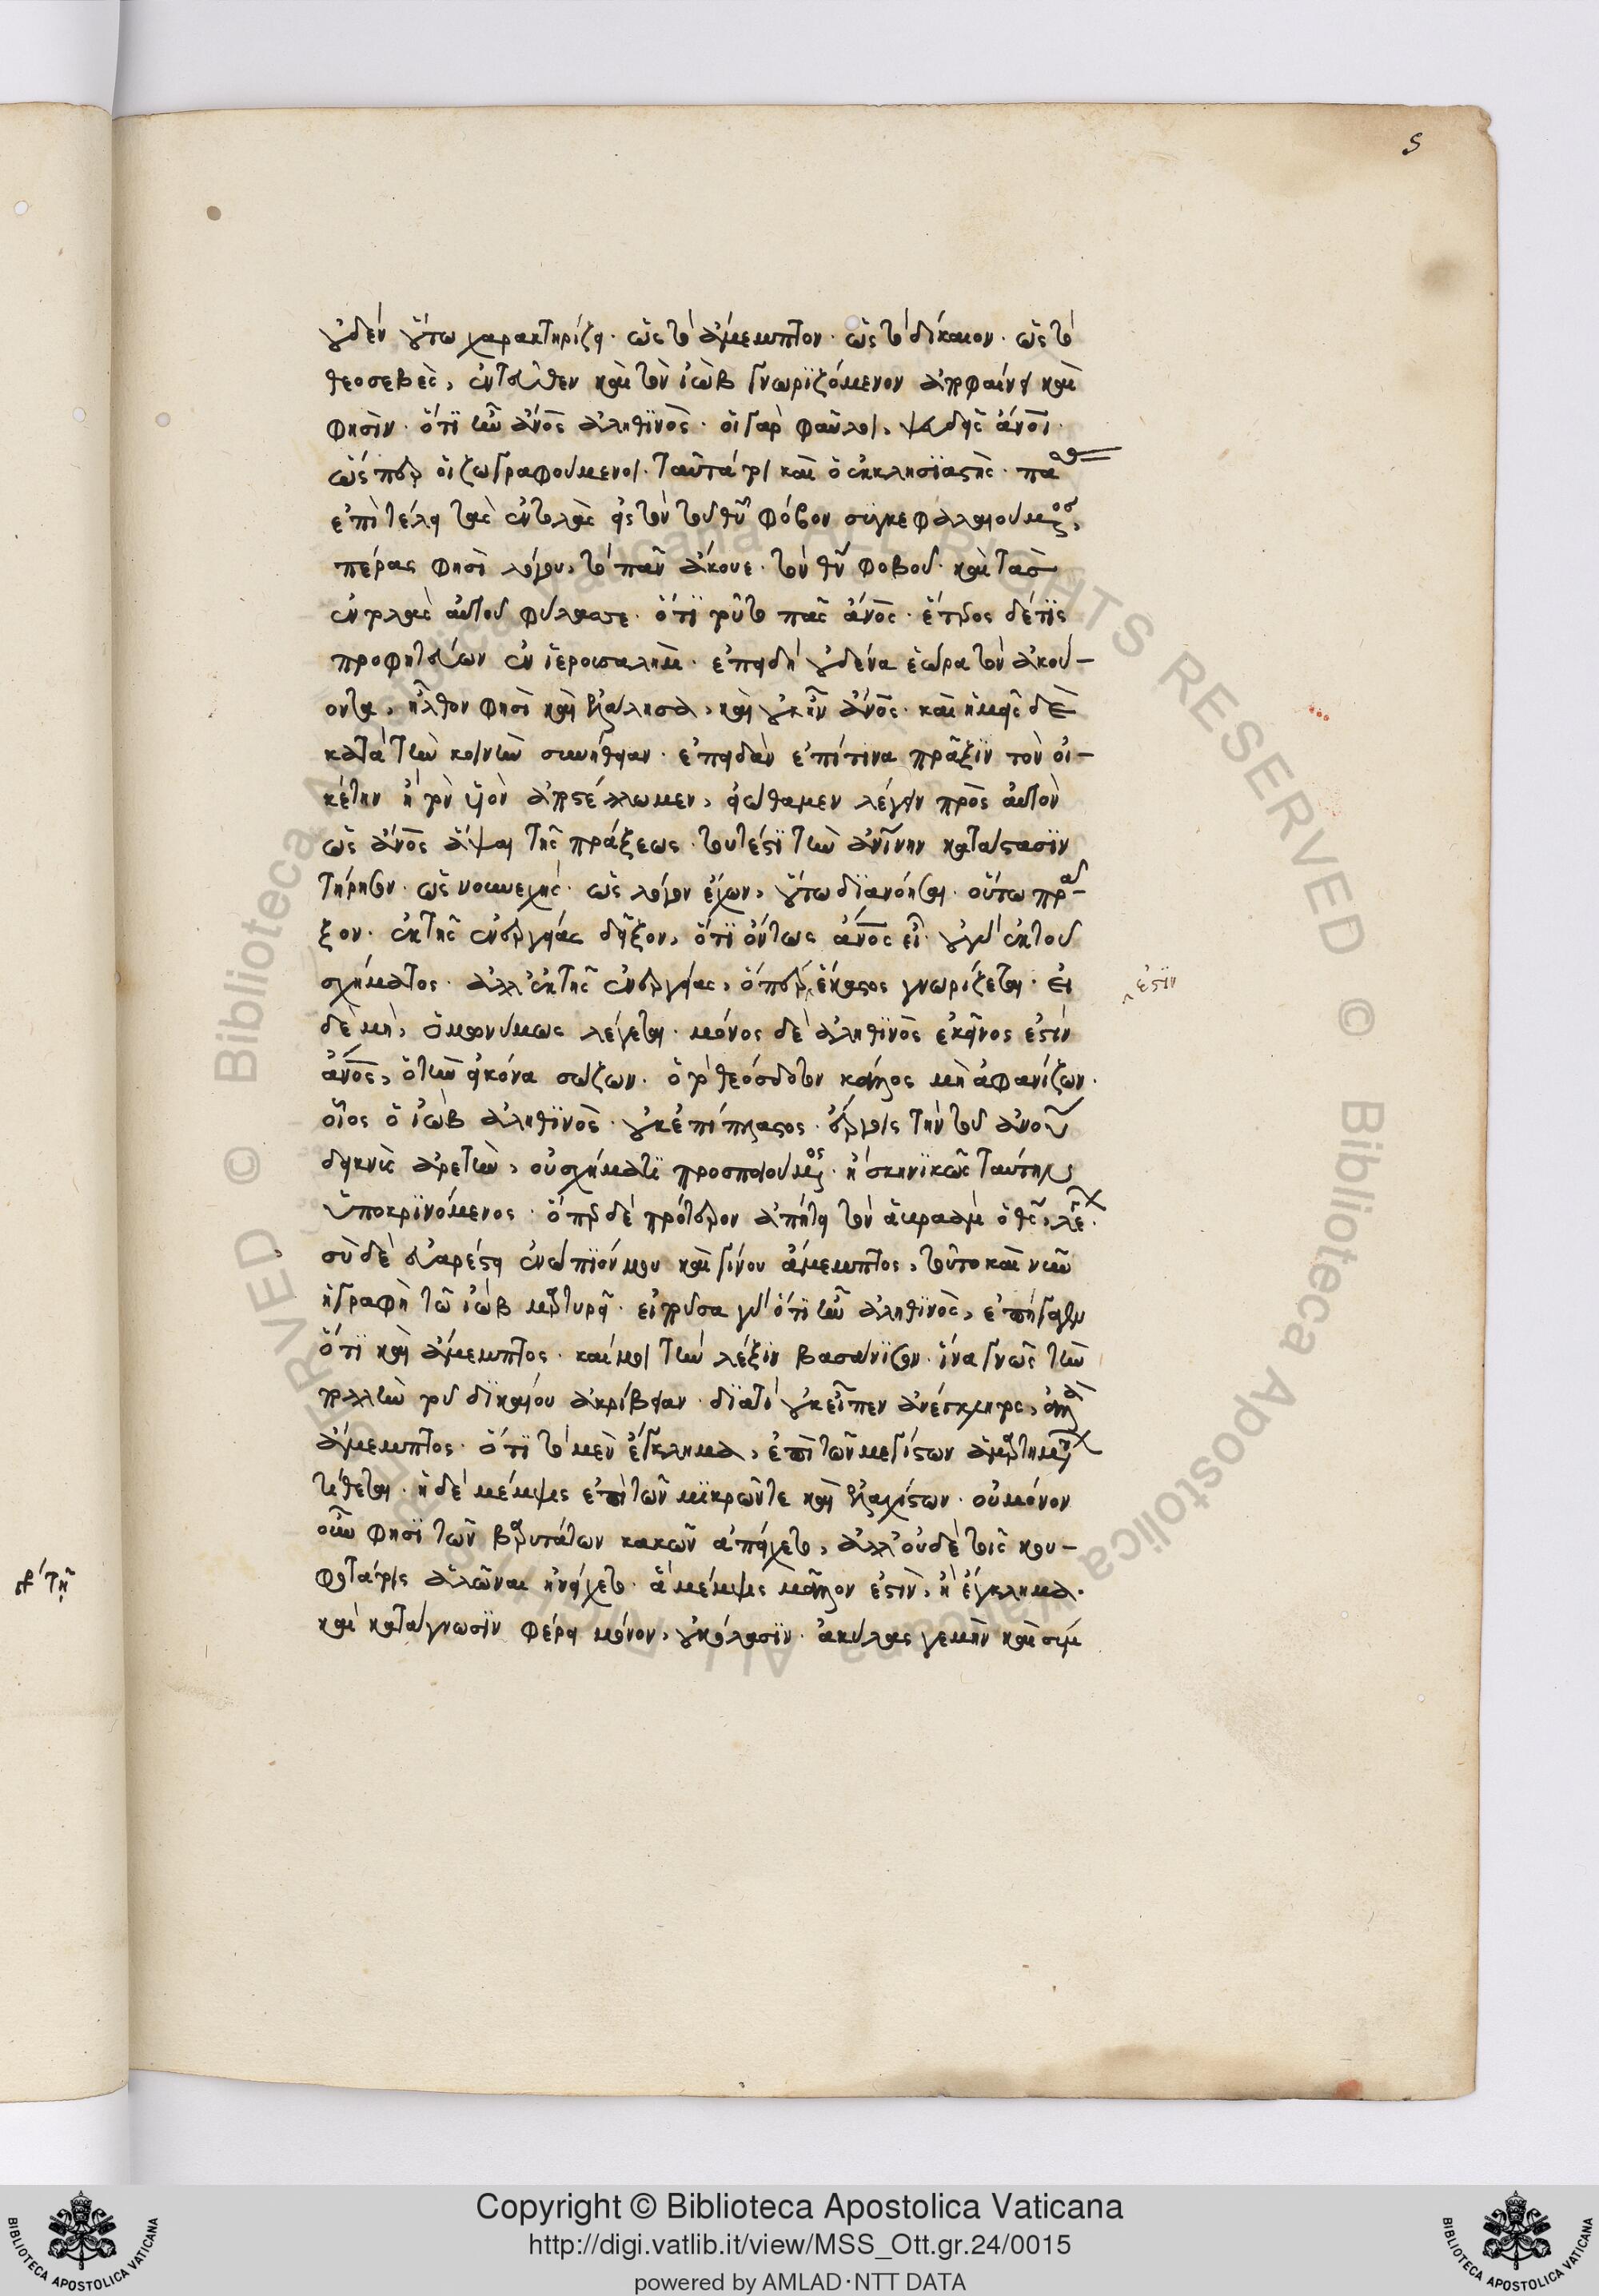 5
οὐδὲν οὕτω χαρακτηρίζει· ὡς τὸ ἄμεμπτον· ὡς τὸ δίκαιον· ὡς τὸ
θεοσεβὲς, ἐντεῦθεν καὶ τὸν ἰὼβ γνωρϊζόμενον ἀποφαίνει καὶ
φησὶν· ὅτϊ ἦν ἄνος ἀληθϊνὸς· οἱ γὰρ φαῦλοι, ψευδεῖς ἄνοι·
ὥς περ οἱ ζωγραφούμενοι· ταῦτά τοι καὶ ὁ ἐκκλησϊαστὴς· πα
ἐπὶ τέλει τὰς ἐντολὰς εἰς τὸν τοῦ θῦ φόβον συγκεφαλαιούμενος,
πέρας φησὶ λόγου, τὸ πᾶν ἄκουε· τὸν θν φοβοῦ· καὶ τὰσ
ἐντολὰς αὐτοῦ φύλασσε· ὅτϊ τοῦτο πᾶς ἄνος· ἕτερος δέ τϊς
προφητεύων ἐν ἱερουσαλὴμ· ἐπειδὴ οὐδένα ἑώρα τὸν ἀκού-
οντα, ἦλθον φησὶ καὶ ἐλάλησα, καὶ οὐκ ἦν ἄνος· καὶ ἡμεῖς δὲ
κατὰ τὴν κοινὴν συνήθειαν· ἐπειδὰν ἐπί τινα πρᾶξϊν τὸν οἰ-
κέτην ἢ τὸν υἱὸν ἀποστέλλωμεν, εἰώθαμεν λέγειν πρὸς αὐτὸν
ὡς ἄνος ἅψαι τῆς πράξεως· τουτέστϊ τὴν ἀνίνην κατάστασϊν
τήρησον· ὡς νουνεχὴς· ὡς λόγον ἔχων, οὕτω διανόησαι· οὕτω πρᾶ-
ξον· ἐκ τῆς ἐνεργείας δεῖξον, ὅτϊ ὄντως ἄνος εἶ· οὐ γὰρ ἐκ τοῦ
σχήματος· ἀλλ' ἐκ τῆς ἐνεργείας, ὅπερ ἕκαστος γνωρίζεται· εἰ
ἐστϊν
δὲ μὴ, ὁμωνύμως λέγεται· μόνος δὲ ἀληθϊνὸς ἐκεῖνος ἐστὶν
ἄνος, ὁ τὴν εἰκόνα σώζων· ὁ τὸ θεόσδοτον κάλλος μὴ ἀφανίζων·
οἷος ὁ ἰὼβ ἀληθϊνὸς· οὐκ ἐπίπλαστος· ἔργοις τὴν τοῦ ἀνου
δεικνὺς ἀρετὴν, οὐ σχήματϊ προσποιούμενος· ἢ σκηνϊκῶς ταύτην
ὑποκρϊνόμενος· ὅπερ δὲ πρότερον ἀπήτει τὸν ἀβραὰμ ὁ θς, λέ·
σὺ δὲ εὐαρέστει ἐνώπϊόν μου καὶ γίνου ἄμεμπτος, τοῦτο καὶ νῦν
ἡ γραφὴ τῷ ἰὼβ μαρτυρεῖ· εἰποῦσα γὰρ ὅτϊ ἦν ἀληθϊνὸς, ἐπήγαγεν
ὅτϊ καὶ ἄμεμπτος· καί μοι τὴν λέξϊν βασάνϊσον· ἵνα γνῷς τὴν
πολλὴν τοῦ δϊκαίου ἀκρίβειαν· δϊατὶ οὐκ εἶπεν ἀνέγκλητος, ἀλλὰ
ἄμεμπτος· ὅτϊ τὸ μὲν ἔγκλημα, ἐπὶ τῶν μεγίστων ἁμαρτημάτων
τίθεται· ἡ δὲ μέμψις ἐπὶ τῶν μϊκρῶν τε καὶ ἐλαχίστων· οὐ μόνον
οὖν φησϊ τῶν βαρυτάτων κακῶν ἀπείχετο, ἀλλ' οὐδὲ τοῖς κου-
φοτάτοις ἁλῶναι ἠνείχετο· ἃ μέμψις μᾶλλον ἐστὶν, ἢ ἔγκλημα·
καὶ κατάγνωσϊν φέρει μόνον, οὐ κόλασϊν· ἀκύλας γε μὴν καὶ σύμ
Copyright © Biblioteca Apostolica Vaticana
http://digi.vatlib.it/view/MSS_Ott.gr.24/0015
powered by AMLAD·NTT DATA
BIBLIOTECA APOSTOLICA VATICANA
BIBLIOTECA APOSTOLICA VATICANA